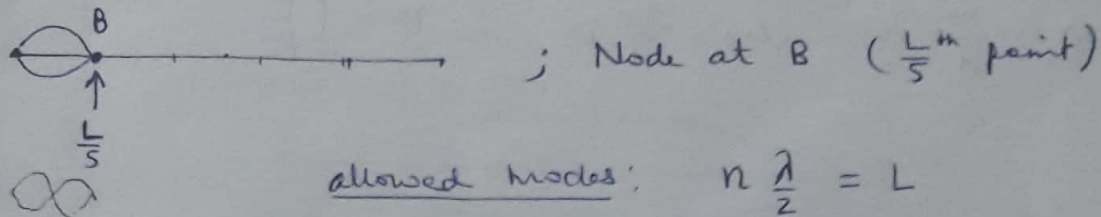 B
; Node at B ( L/5 th point )
L/5
allowed modes: n λ/2 = L